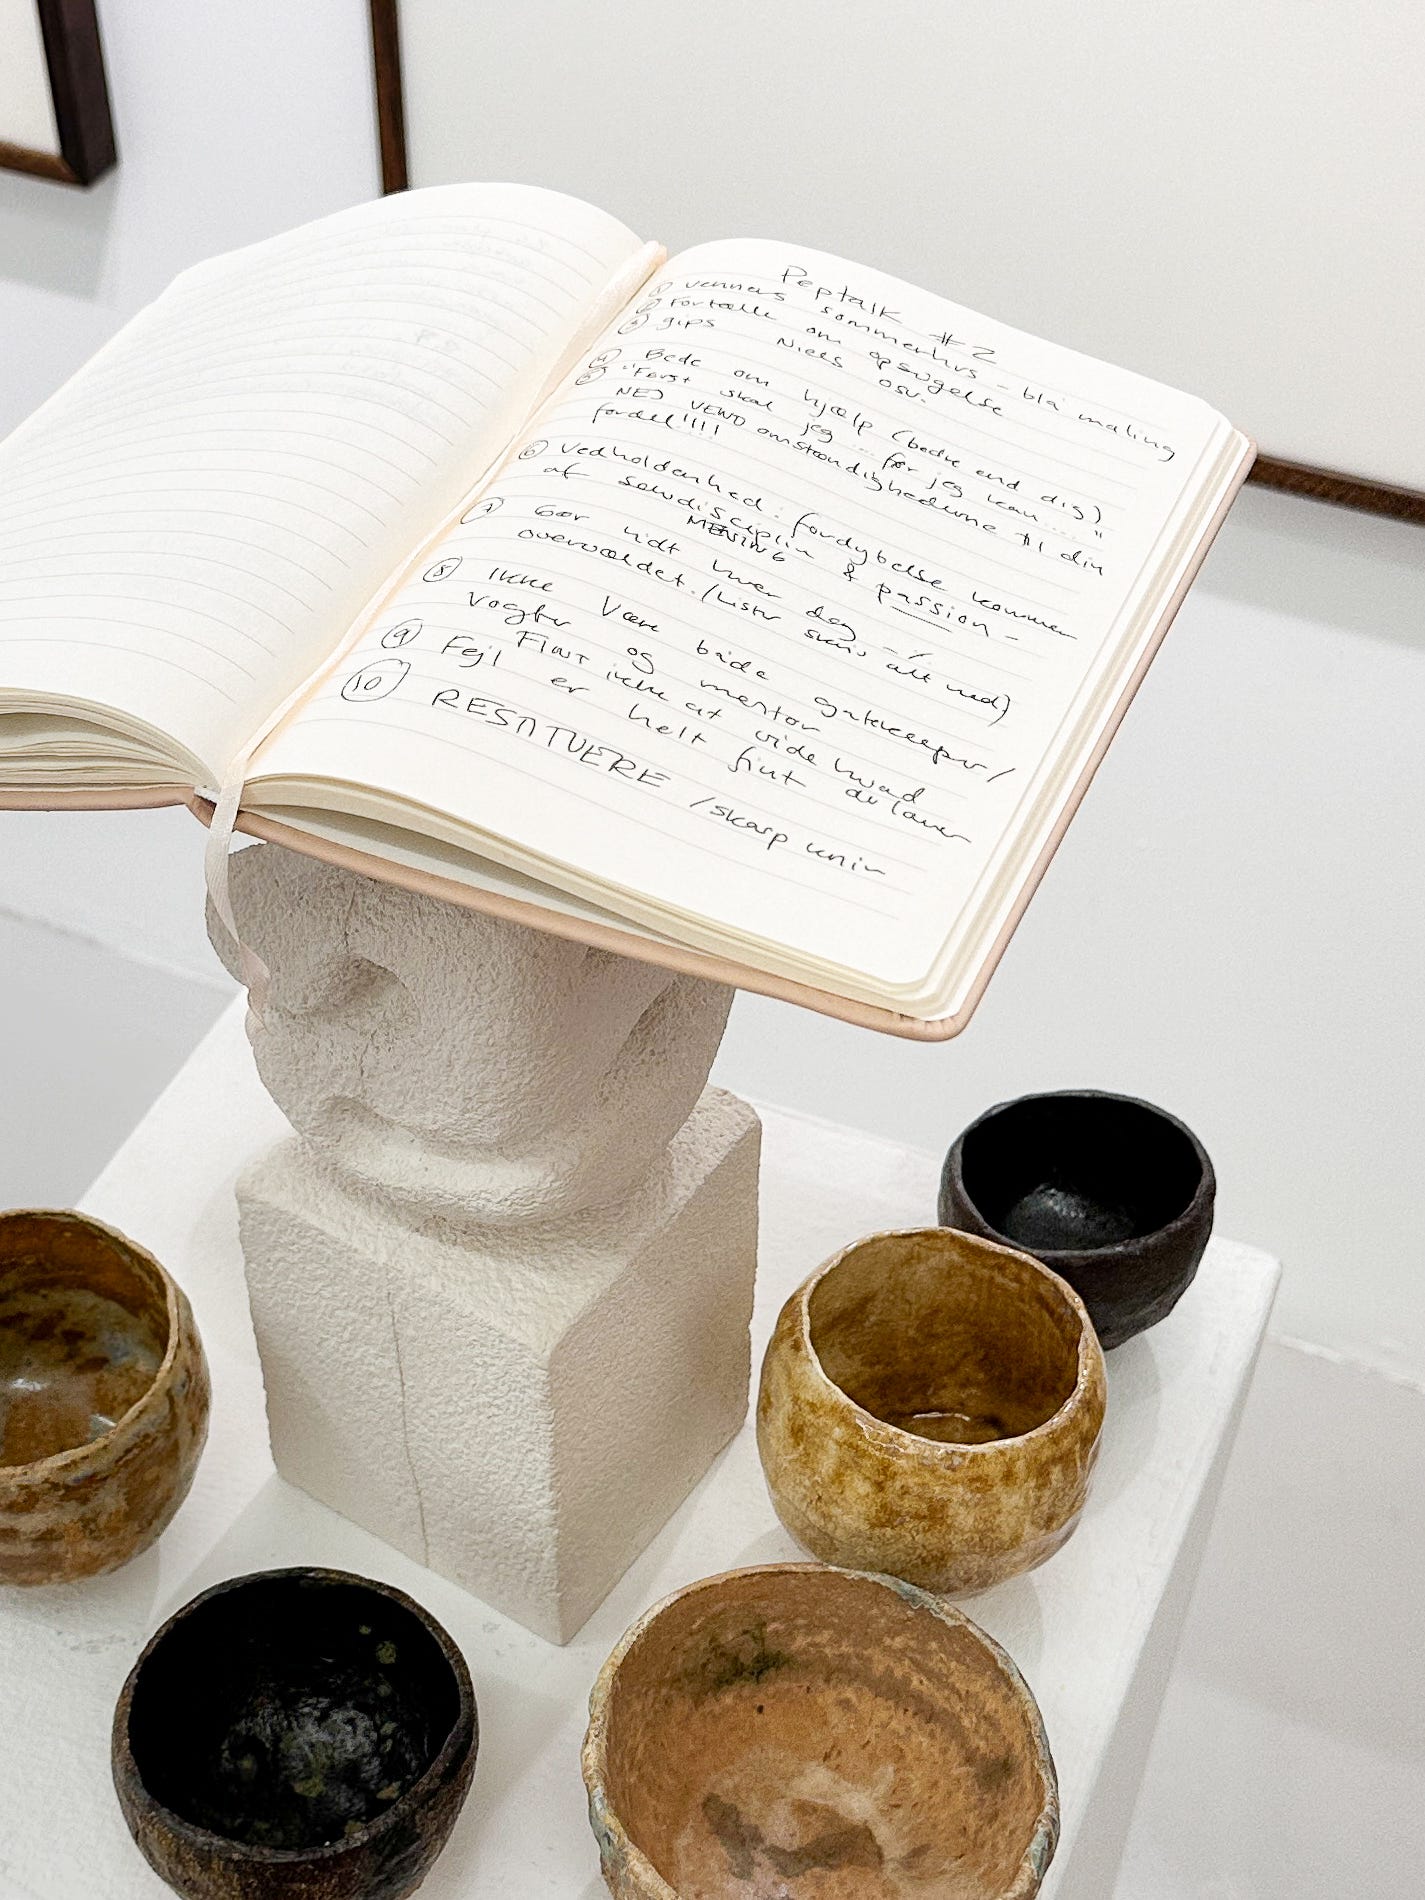 Peptalk #2
① vennens sommerhus - blå maling
② Fortælle om opsøgelse
③ gips Niels osv.
④ Bede om hjælp (bedre end dig)
⑤ "Først skal jeg... før jeg kan..."
NEJ VEND omstændighederne til din
fordel!!!!
⑥ Vedholdenhed: fordybelse kommer
af selvdisciplin & passion -
MENING
⑦ Gør lidt hver dag -
overvældet. (Lister skriv alt ned)
⑧ Ikke være både gatekeeper/
vogter og mentor
Fint ikke at vide hvad du laver
⑨ Fejl er helt fint
⑩ RESTITUERE /skarp